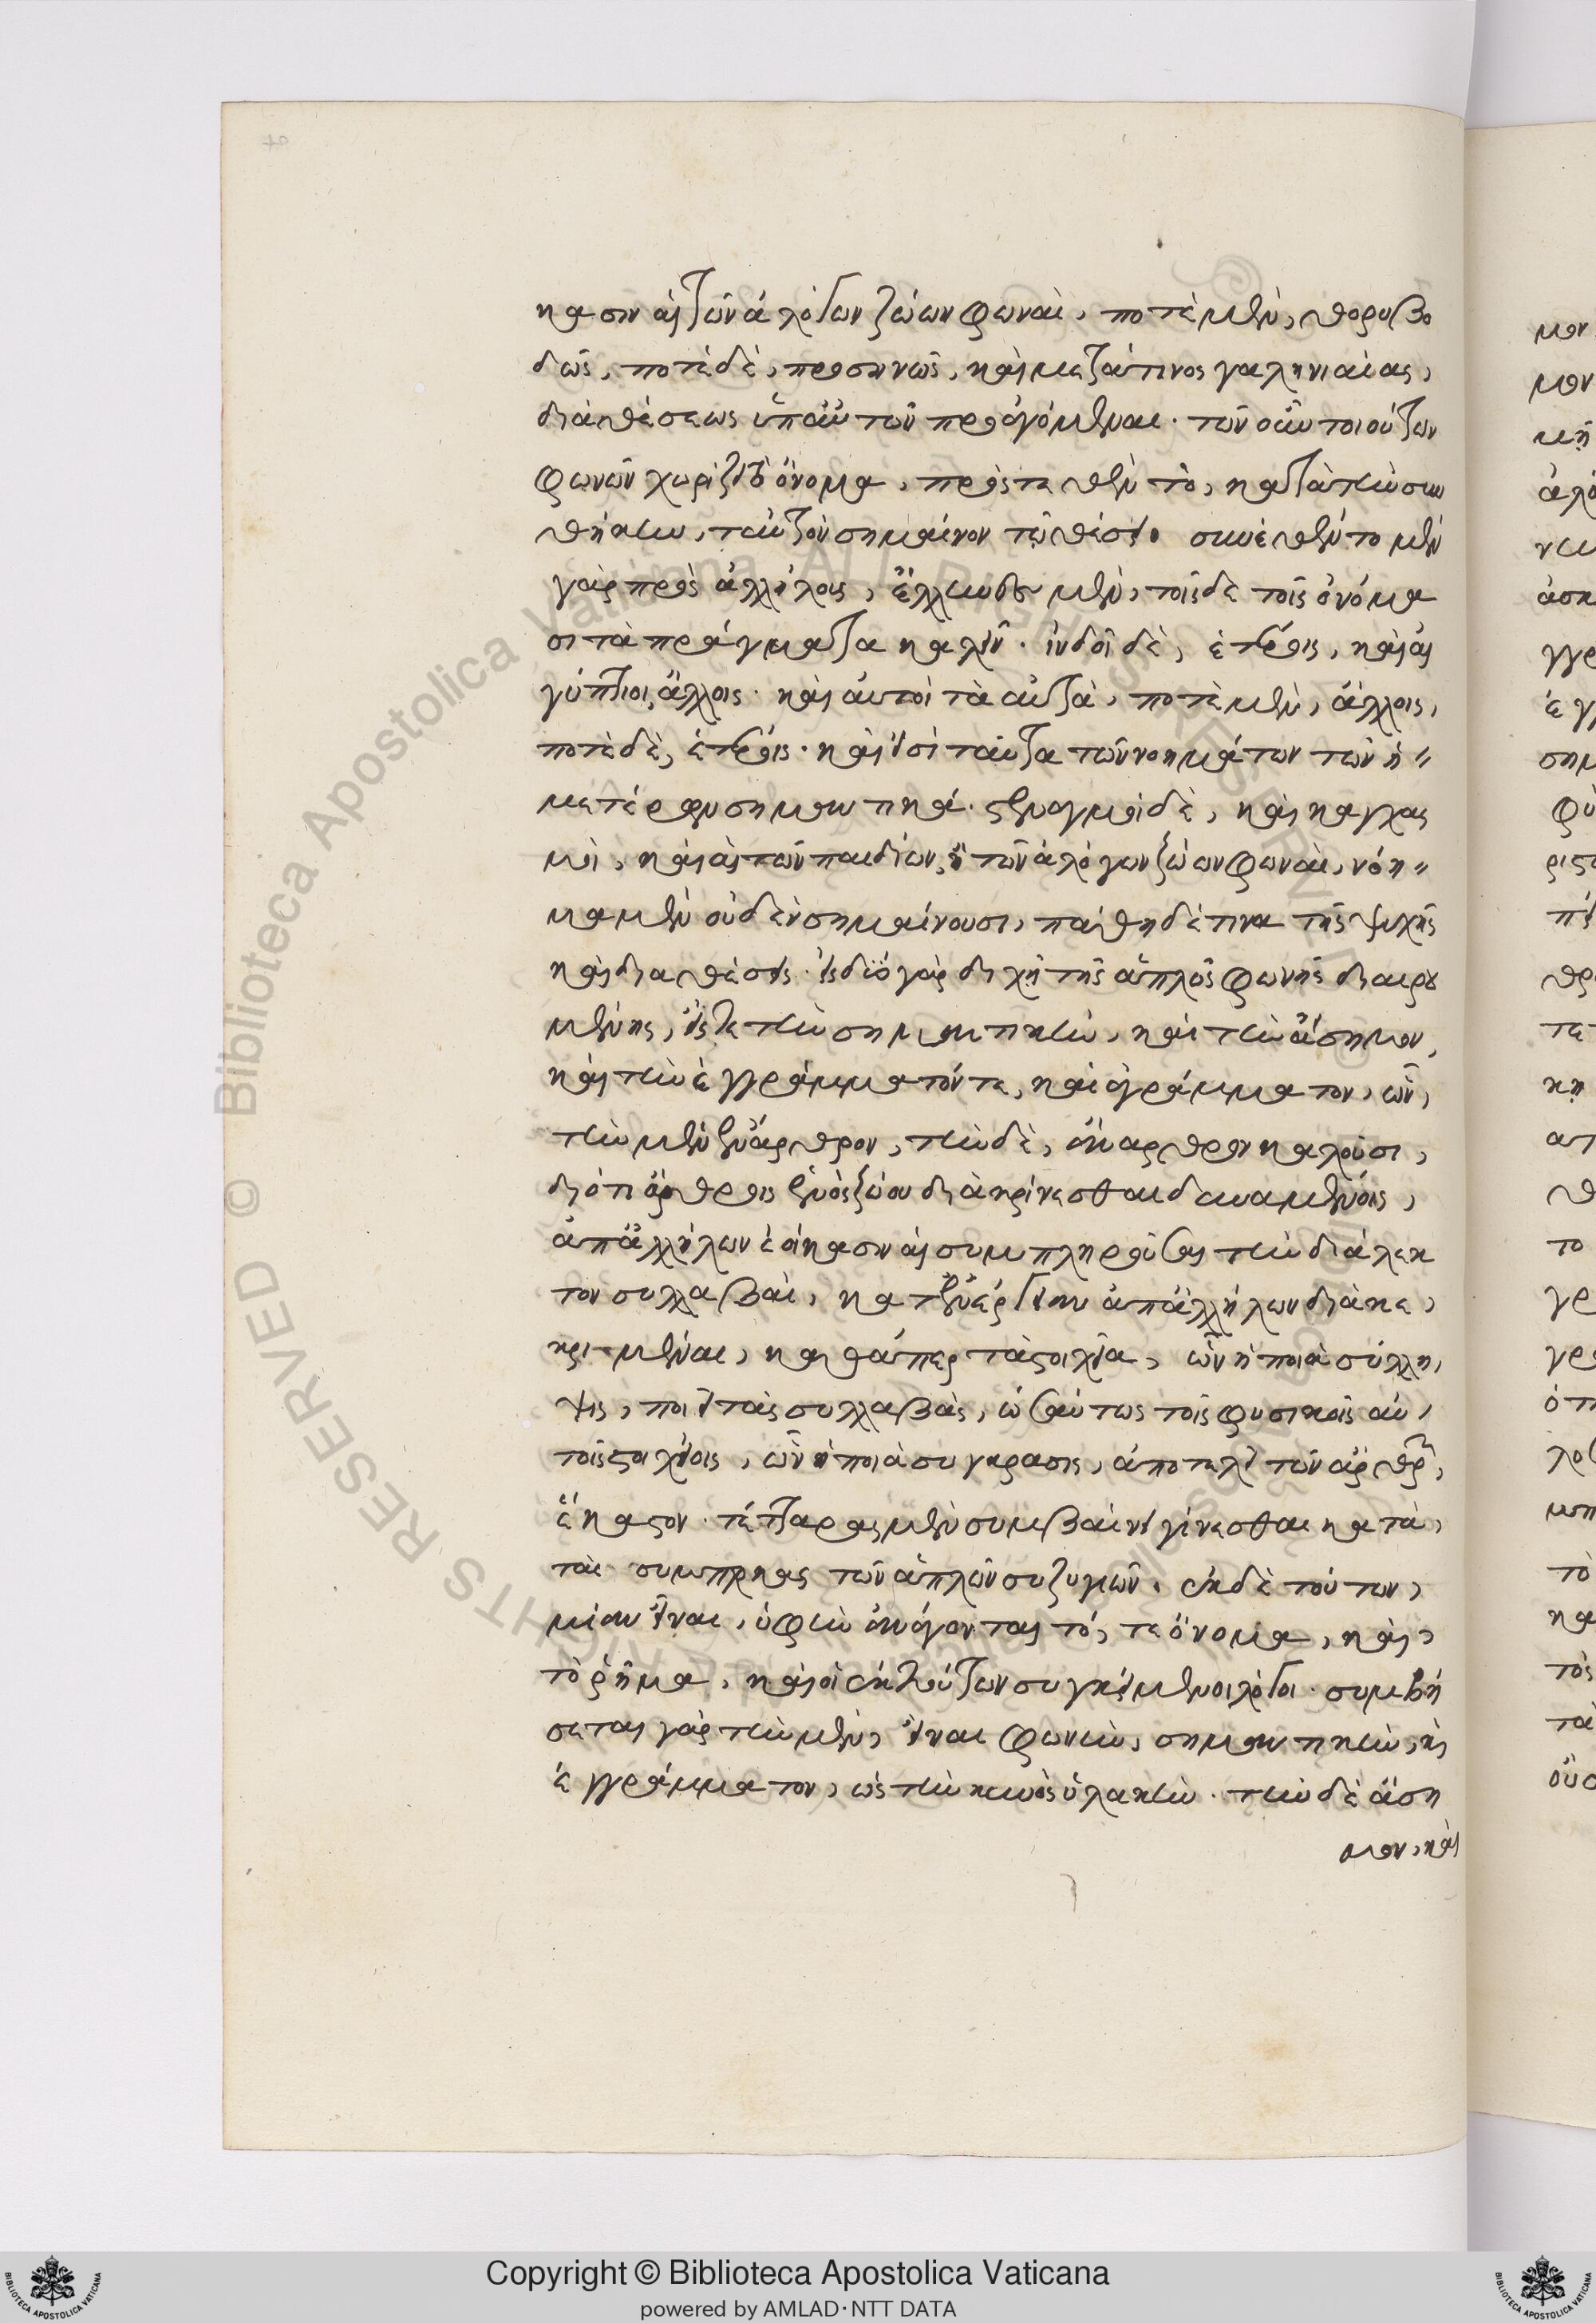 κασιν αἱ τῶν ἀλόγων ζώων φωναὶ, ποτὲ μὲν, θορυβο
δῶς, ποτὲ δὲ, προσηνῶς, καὶ μετά τινος γαληνιαίας,
διαθέσεως ὑπ' αὐτῶν προαγόμεναι. τῶν οὖν τοιούτων
φωνῶν χωρίζει τὸ ὄνομα, πρὸς τεθὲν τὸ, κατὰ συν
θήκην, ταὐτὸν σημαῖνον τῷ θέσει. συνέθεντο μὲν
γὰρ πρὸς ἀλλήλους, ἕλληνες μὲν, τοῖσδε τοῖς ὀνόμα
σι τὰ πράγματα καλεῖν. ἰνδοὶ δὲ, ἑτέροις, καὶ αἰ
γύπτιοι, ἄλλοις. καὶ αὐτοὶ τὰ αὐτὰ, ποτὲ μὲν, ἄλλοις,
ποτὲ δὲ, ἑτέροις. καὶ εἰσὶ ταῦτα τῶν νοημάτων τῶν ἡ〃
μετέρων σημαντικά. στεναγμοὶ δὲ, καὶ καγχας
μοὶ, καὶ αἱ τῶν παιδίων, ἢ τῶν ἀλόγων ζώων φωναὶ, νόη〃
μα μὲν οὐδὲν σημαίνουσι, πάθη δέ τινα τῆς ψυχῆς
καὶ διαθέσεις. εἰς δύο γὰρ διχῇ τῆς ἁπλῶς φωνῆς διαιρου
μένης, εἴς τε τὴν σημαντικὴν, καὶ τὴν ἄσημον,
καὶ τὴν ἐγγράμματόν τε, καὶ ἀγράμματον, ὧν,
τὴν μὲν ἔναρθρον, τὴν δὲ, ἄναρθρον καλοῦσι,
διότι ἄρθροις ἑνὸς ζώου διακρίνεσθαι δυναμένοις,
ἀπ' ἀλλήλων ἐοίκασιν αἱ συμπληροῦσαι τὴν διάλεκ
τον συλλαβαὶ, κατ' ἐνέργειαν ἀπ' ἀλλήλων διακε,
κριμέναι, καθάπερ τὰ στοιχεῖα, ὧν ἡ ποιὰ σύλλη,
ψις, ποιεῖ τὰς συλλαβὰς, ὡσαύτως τοῖς φυσικοῖς αὐ,
τοῖς στοιχείοις, ὧν ἡ ποιὰ σύγκρασις, ἀποτελεῖ τῶν ἄρθρων,
ἕκαστον. τέτταρας μὲν συμβαίνει γίνεσθαι κατὰ,
τὰς συμπλοκὰς τῶν ἁπλῶν συζυγιῶν. ἐκ δὲ τούτων,
μίαν εἶναι, ὑφ' ἣν ἀνάγονται τό, τε ὄνομα, καὶ,
τὸ ῥῆμα, καὶ οἱ ἐκ τούτων συγκείμενοι λόγοι. συμβή
σεται γὰρ τὴν μὲν, εἶναι φωνὴν, σημαντικὴν, καὶ
ἐγγράμματον, ὡς τὴν κυνὸς ὑλακὴν. τὴν δὲ ἄση
μον, καὶ
Copyright © Biblioteca Apostolica Vaticana
powered by AMLAD·NTT DATA